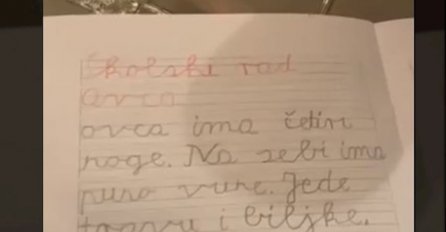 Školski rad
Ovca
ovca ima četiri
noge. Na sebi ima
puno vune. Jede
travu i biljke.